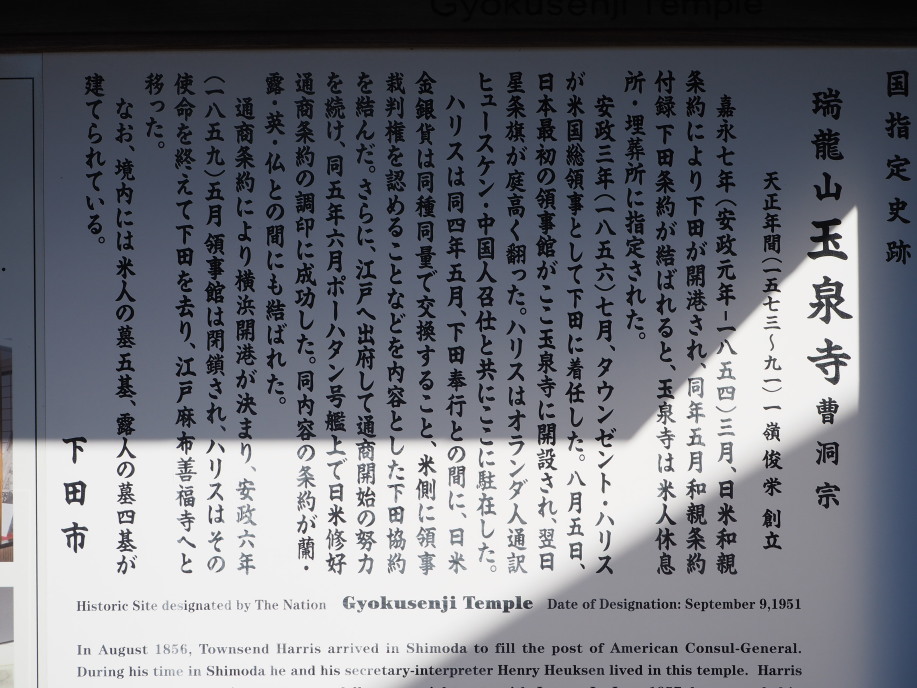 Gyokusenji Temple
国指定史跡
瑞龍山玉泉寺 曹洞宗
天正年間(一五七三〜九一)一嶺俊栄 創立
嘉永七年(安政元年−一八五四)三月、日米和親
条約により下田が開港され、同年五月和親条約
付録下田条約が結ばれると、玉泉寺は米人休息
所・埋葬所に指定された。
安政三年(一八五六)七月、タウンゼント・ハリス
が米国総領事として下田に着任した。八月五日、
日本最初の領事館がここ玉泉寺に開設され、翌日
星条旗が庭高く翻った。ハリスはオランダ人通訳
ヒュースケン・中国人召仕と共にここに駐在した。
ハリスは同四年五月、下田奉行との間に、日米
金銀貨は同種同量で交換すること、米側に領事
裁判権を認めることなどを内容とした下田協約
を結んだ。さらに、江戸へ出府して通商開始の努力
を続け、同五年六月ポーハタン号艦上で日米修好
通商条約の調印に成功した。同内容の条約が蘭・
露・英・仏との間にも結ばれた。
通商条約により横浜開港が決まり、安政六年
(一八五九)五月領事館は閉鎖され、ハリスはその
使命を終えて下田を去り、江戸麻布善福寺へと
移った。
なお、境内には米人の墓五基、露人の墓四基が
建てられている。
下田市
Historic Site designated by The Nation Gyokusenji Temple Date of Designation: September 9,1951
In August 1856, Townsend Harris arrived in Shimoda to fill the post of American Consul-General.
During his time in Shimoda he and his secretary-interpreter Henry Heuksen lived in this temple. Harris